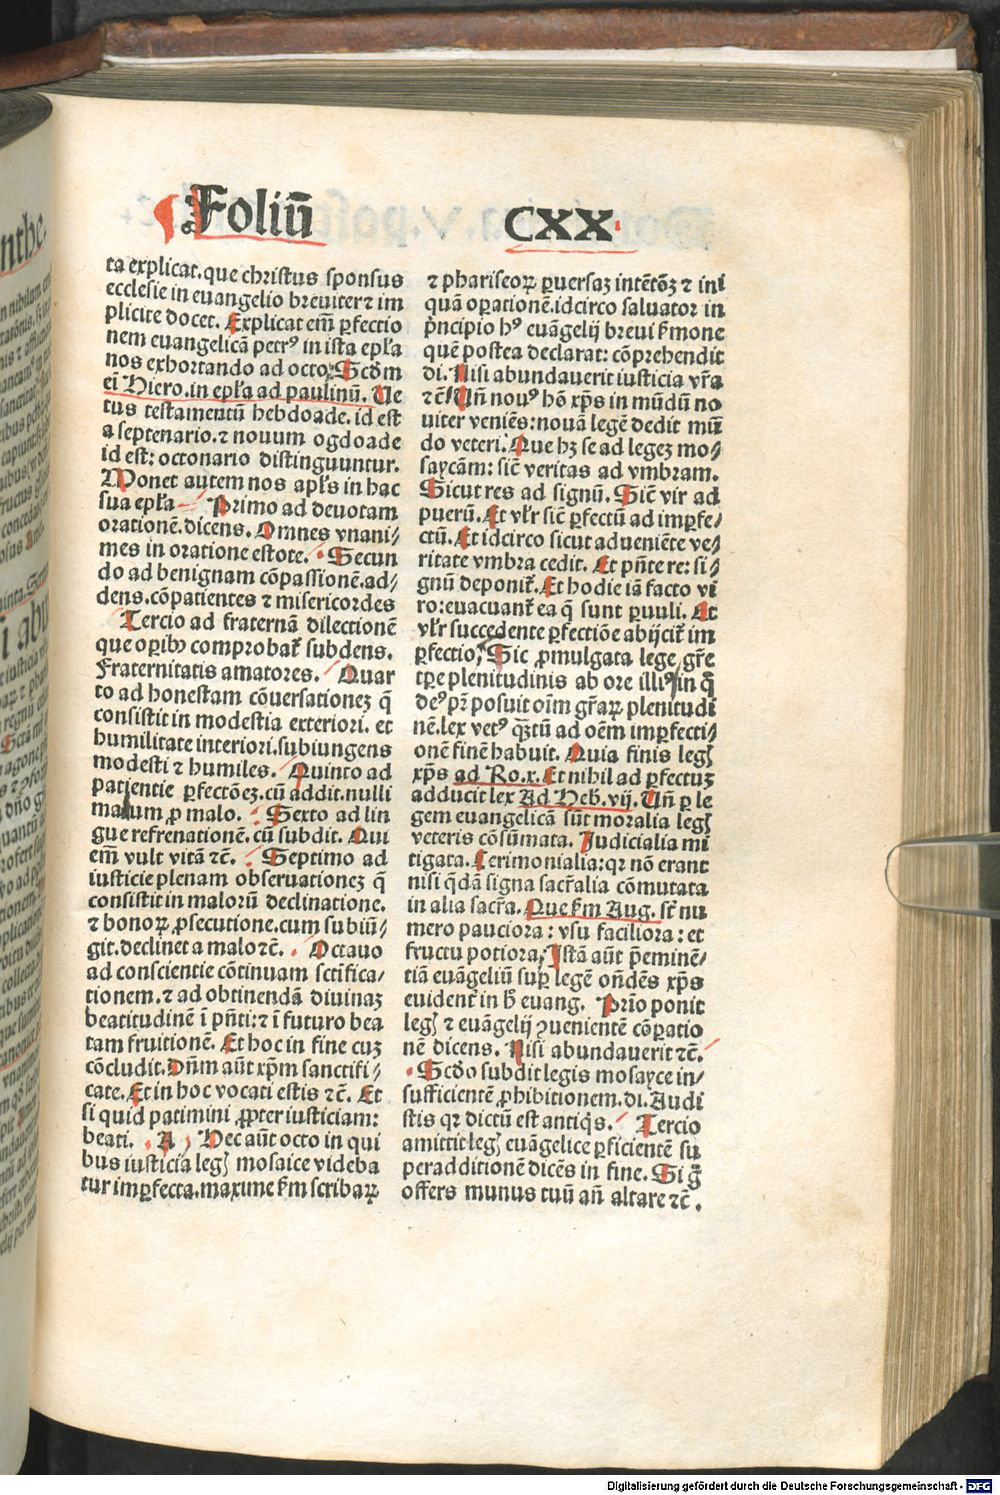 Foliū CXX.
ta explicat. que christus sponsus
ecclesie in euangelio breuiter ⁊ im
plicite docet. Explicat em̄ ꝑfectio
nem euangelicā petrꝰ in ista epl̄a
nos exhortando ad octo. Scd̄m
eī Hiero. in epl̄a ad paulinū. Ue
tus testamentū hebdoade. id est
a septenario. ⁊ nouum ogdoade
id est: octonario distinguuntur.
Monet autem nos apl̄s in hac
sua epl̄a Primo ad deuotam
orationē. dicens. Omnes vnani⸗
mes in oratione estote. Secun
do ad benignam cōpassionē. ad⸗
dens. cōpatientes ⁊ misericordes
Tercio ad fraternā dilectionē
que oꝑibꝰ comprobat᷑ subdens.
Fraternitatis amatores. Quar
to ad honestam cōuersationeꝫ q̄
consistit in modestia exteriori. et
humilitate interiori. subiungens
modesti ⁊ humiles. Quinto ad
patientie ꝑfectōeꝫ. cū addit. nulli
malum ꝓ malo. Sexto ad lin
gue refrenationē. cū subdit. Qui
em̄ vult vitā ⁊c̄. Septimo ad
iusticie plenam obseruationeꝫ q̄
consistit in malorū declinatione.
⁊ bonoꝝ ꝓsecutione. cum subiū⸗
git. declinet a malo ⁊c̄. Octauo
ad conscientie cōtinuam sctīfica⸗
tionem. ⁊ ad obtinendā diuinaꝫ
beatitudinē ī pn̄ti: ⁊ ī futuro bea
tam fruitionē. Et hoc in fine cuꝫ
cōcludit. Dn̄m aūt xp̄m sanctifi⸗
cate. Et in hoc vocati estis ⁊c̄. Et
si quid patimini ꝓpter iusticiam:
beati. A Hec aūt octo in qui
bus iusticia legꝭ mosaice videba
tur imꝑfecta. maxime ẜm scribaꝝ
⁊ phariseoꝝ ꝑuersaꝫ intētōꝫ ⁊ ini
quā oꝑationē. idcirco saluator in
pͥncipio hꝰ euāgelij breui ẜmone
quē postea declarat: cōprehendit
di. Nisi abundauerit iusticia vr̄a
⁊c̄ Un̄ nouꝰ hō xp̄s in mūdū no
uiter veniēs: nouā legē dedit mū
do veteri. Que hꝫ se ad legeꝫ mo⸗
saycām: sic̄ veritas ad vmbram.
Sicut res ad signū. Sic̄ vir ad
puerū. Et vl̄r sic̄ ꝑfectū ad imꝑfe⸗
ctū. Et idcirco sicut adueniēte ve⸗
ritate vmbra cedit. Et pn̄te re: si⸗
gnū deponit᷑. Et hodie iā facto vi
ro: euacuant᷑ ea q̄ sunt ꝑuuli. Et
vl̄r succedente ꝑfectiōe abijcit᷑ im
ꝑfectio, Sic ꝓmulgata lege gr̄e
tꝑe plenitudinis ab ore illiꝰ in q̄
deꝰ pr̄ posuit oīm gr̄aꝝ plenitudi
nē. lex vetꝰ qꝫtū ad oēm imꝑfecti⸗
onē finē habuit. Quia finis legꝭ
xp̄s ad Ro. x. Et nihil ad ꝑfectuꝫ
adducit lex Ad Heb. vij. Un̄ ꝑ le
gem euangelicā sūt moralia legꝭ
veteris cōsūmata. Judicialia mi
tigata. Cerimonialia: qꝛ nō erant
nisi q̄dā signa sacr̄alia cōmutata
in alia sacr̄a. Que ẜm Aug. st̄ nu
mero pauciora: vsu faciliora: et
fructu potiora; Istā aūt p̄eminē⸗
tiā euāgeliū suꝑ legē on̄dēs xp̄s
euident᷑ in h̄ euang. Prīo ponit
legꝭ ⁊ euāgelij ꝯuenientē cōꝑatio
nē dicens. Nisi abundauerit ⁊c̄.
Scd̄o subdit legis mosayce in⸗
sufficientē ꝓhibitionem. di. Audi
stis qꝛ dictū est antiq̄s. Tercio
amittit legꝭ euāgelice ꝑficientē su
peradditionē dicēs in fine. Si g̊
offers munus tuū an̄ altare ⁊c̄.
Digitalisierung gefördert durch die Deutsche Forschungsgemeinschaft - DFG